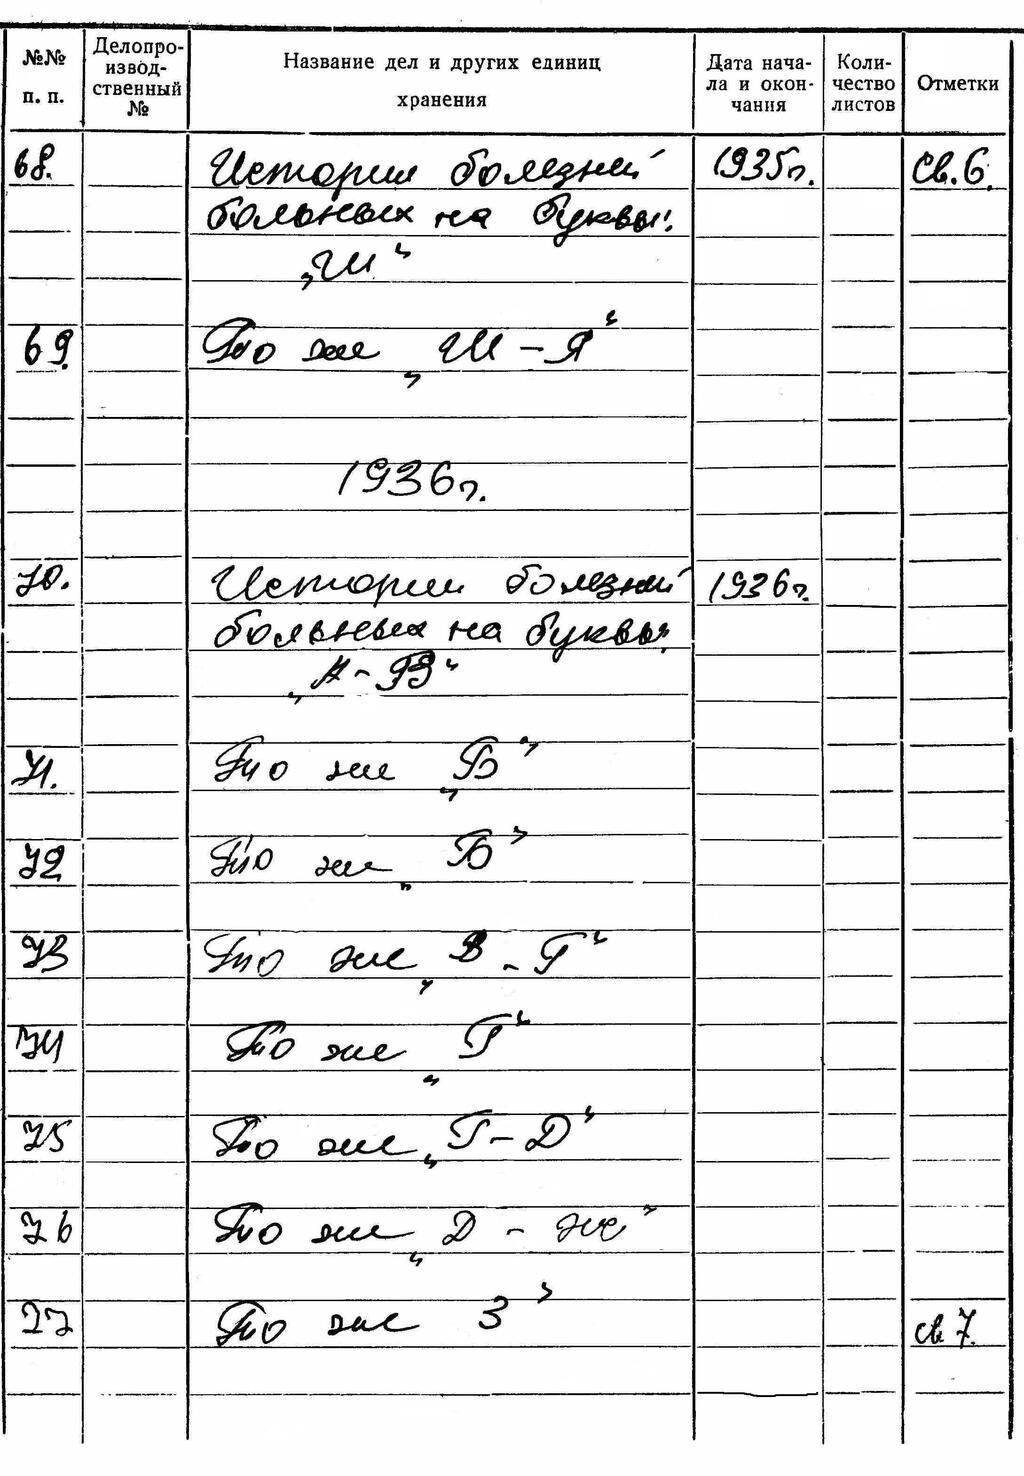 №№ п. п.
Делопроизводственный №
Название дел и других единиц хранения
Дата начала и окончания
Количество листов
Отметки
68. Истории болезней 1935г. Св. 6.
больных на буквы:
„Ш“
69. То же „Ш – Я“
1936г.
70. Истории болезней 1936г.
больных на буквы:
71. То же „Б“
72 То же „Б“
73 То же „В – Г“
74 То же „Г“
75 То же „Г – Д“
76 То же „Д – Ж“
77 То же З“ св 7.